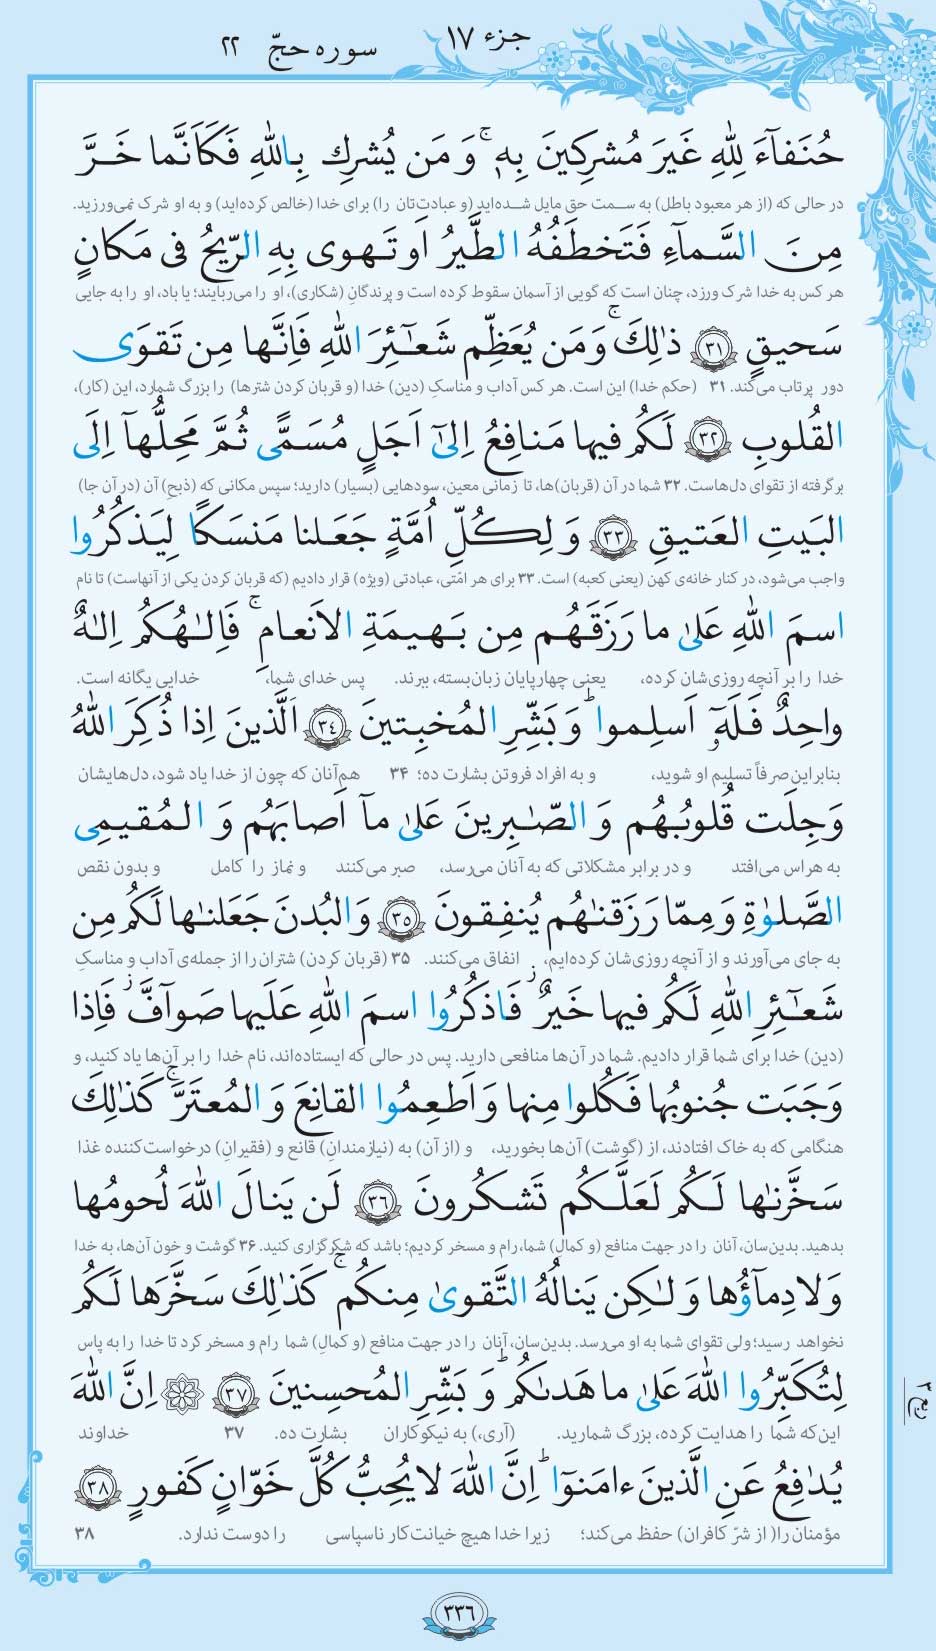 جزء ۱۷
سوره حجّ ۲۲
حُنَفآءَ لِلّٰهِ غَيرَ مُشرِكينَ بِهٖ ۚ وَ مَن يُشرِك بِاللّٰهِ فَكَاَنَّما خَرَّ
در حالی که (از هر معبود باطل) به سـمت حق مایل شـده‌اید (و عبادت‌تان را) برای خدا (خالص کرده‌اید) و به او شرک نمی‌ورزید.
مِنَ السَّمآءِ فَتَخطَفُهُ الطَّيرُ اَو تَهوى بِهِ الرّيحُ فى مَكانٍ
هر کس به خدا شرک ورزد، چنان است که گویی از آسمان سقوط کرده است و پرندگانِ (شکاری)، او را می‌ربایند؛ یا باد، او را به جایی
سَحيقٍ ﴿٣١﴾ ذٰلِكَ ۚ وَ مَن يُعَظِّم شَعٰٓئِرَ اللّٰهِ فَاِنَّها مِن تَقوَى
دور پرتاب می‌کند. ۳۱ (حکم خدا) این است. هر کس آداب و مناسکِ (دین) خدا (و قربان کردن شترها) را بزرگ شمارد، این (کار)،
القُلوبِ ﴿٣٢﴾ لَكُم فيها مَنافِعُ اِلىٰٓ اَجَلٍ مُسَمًّى ثُمَّ مَحِلُّهآ اِلَى
برگرفته از تقوای دل‌هاست. ۳۲ شما در آن (قربان)ها، تا زمانی معین، سودهایی (بسیار) دارید؛ سپس مکانی که (ذبحِ) آن (در آن جا)
البَيتِ العَتيقِ ﴿٣٣﴾ وَ لِكُلِّ اُمَّةٍ جَعَلنا مَنسَكًا لِيَذكُرُوا
واجب می‌شود، در کنار خانه‌ی کهن (یعنی کعبه) است. ۳۳ برای هر امّتی، عبادتی (ویژه) قرار دادیم (که قربان کردن یکی از آنهاست) تا نام
اسمَ اللّٰهِ عَلىٰ ما رَزَقَهُم مِن بَهيمَةِ الاَنعامِ ۚ فَاِلٰهُكُم اِلٰهٌ
خدا را بر آنچه روزی‌شان کرده، یعنی چهارپایان زبان‌بسته، ببرند. پس خدای شما، خدایی یگانه است.
واحِدٌ فَلَهٗٓ اَسلِموا ۗ وَ بَشِّرِ المُخبِتينَ ﴿٣٤﴾ اَلَّذينَ اِذا ذُكِرَ اللّٰهُ
بنابراین صرفاً تسلیم او شوید، و به افراد فروتن بشارت ده؛ ۳۴ هم‌آنان که چون از خدا یاد شود، دل‌هایشان
وَجِلَت قُلوبُهُم وَ الصّٰبِرينَ عَلىٰ مآ اَصابَهُم وَ المُقيمِى
به هراس می‌افتد و در برابر مشکلاتی که به آنان می‌رسد، صبر می‌کنند و نماز را کامل و بدون نقص
الصَّلوٰةِ وَ مِمّا رَزَقنٰهُم يُنفِقونَ ﴿٣٥﴾ وَ البُدنَ جَعَلنٰها لَكُم مِن
به جای می‌آورند و از آنچه روزی‌شان کرده‌ایم، انفاق می‌کنند. ۳۵ (قربان کردنِ) شتران را از جمله‌ی آداب و مناسکِ
شَعٰٓئِرِ اللّٰهِ لَكُم فيها خَيرٌ ۖ فَاذكُرُوا اسمَ اللّٰهِ عَلَيها صَوآفَّ ۖ فَاِذا
(دین) خدا برای شما قرار دادیم. شما در آن‌ها منافعی دارید. پس در حالی که ایستاده‌اند، نام خدا را بر آن‌ها یاد کنید، و
وَجَبَت جُنوبُها فَكُلوا مِنها وَ اَطعِمُوا القانِعَ وَ المُعتَرَّ ۚ كَذٰلِكَ
هنگامی که به خاک افتادند، از (گوشت) آن‌ها بخورید، و (از آن) به (نیازمندانِ) قانع و (فقیرانِ) درخواست‌کننده غذا
سَخَّرنٰها لَكُم لَعَلَّكُم تَشكُرونَ ﴿٣٦﴾ لَن يَنالَ اللّٰهَ لُحومُها
بدهید. بدین‌سان، آنان را در جهت منافع (و کمالِ) شما، رام و مسخر کردیم؛ باشد که شکرگزاری کنید. ۳۶ گوشت و خون آن‌ها، به خدا
وَ لا دِمآؤُها وَ لٰكِن يَنالُهُ التَّقوىٰ مِنكُم ۚ كَذٰلِكَ سَخَّرَها لَكُم
نخواهد رسید؛ ولی تقوای شما به او می‌رسد. بدین‌سان، آنان را در جهت منافع (و کمال) شما رام و مسخر کرد تا خدا را به پاس
لِتُكَبِّرُوا اللّٰهَ عَلىٰ ما هَدىٰكُم ۗ وَ بَشِّرِ المُحسِنينَ ﴿٣٧﴾ ۞ اِنَّ اللّٰهَ
این‌که شما را هدایت کرده، بزرگ شمارید. (آری،) به نیکوکاران بشارت ده. ۳۷ خداوند
يُدٰفِعُ عَنِ الَّذينَ ءامَنوٓا ۗ اِنَّ اللّٰهَ لا يُحِبُّ كُلَّ خَوّانٍ كَفورٍ ﴿٣٨﴾
مؤمنان را (از شرّ کافران) حفظ می‌کند؛ زیرا خدا هیچ خیانت‌کار ناسپاسی را دوست ندارد. ۳۸
۳۳۶